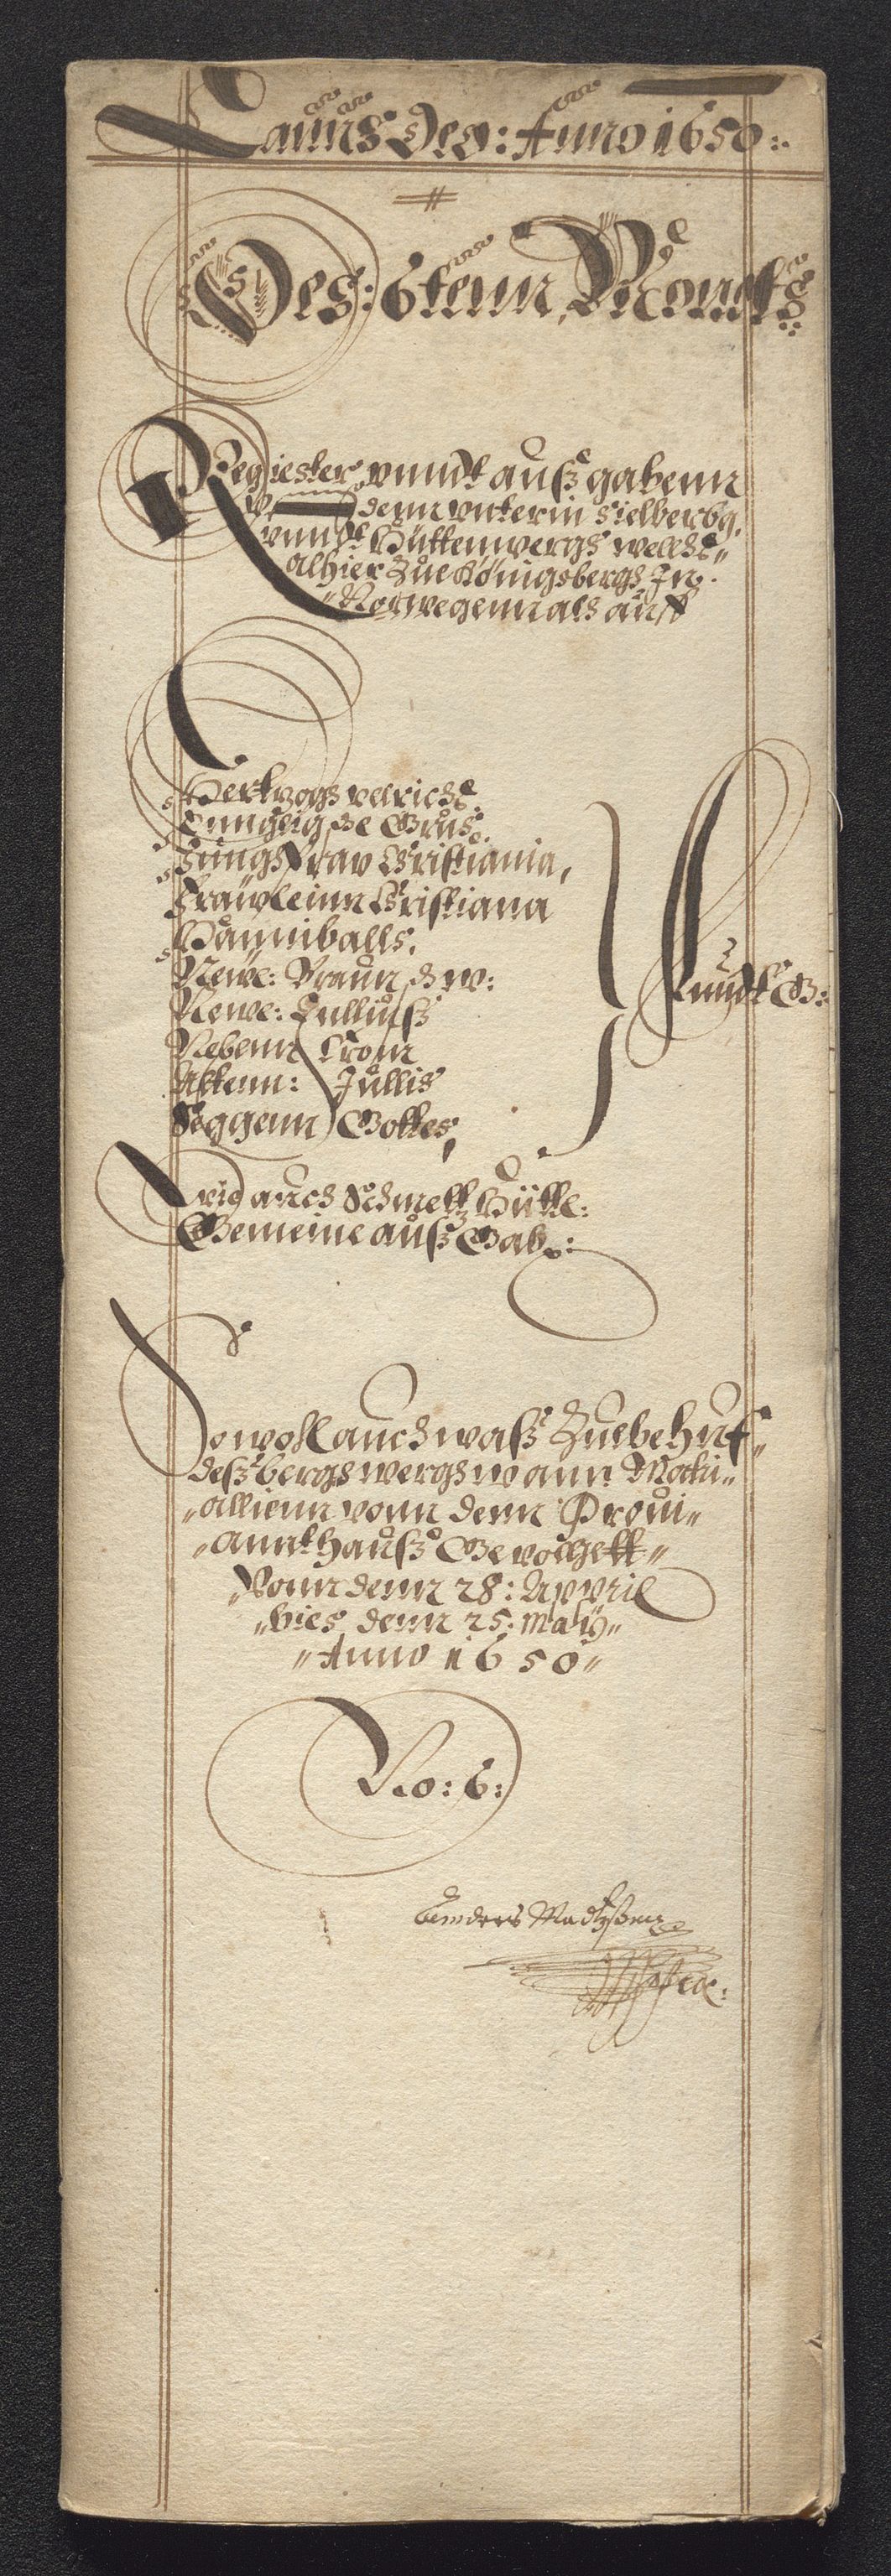 Laüs Deo: Anno 1650:
Des: 6tenn Monets
Regiester vnndt außgabenn
denn vnterm Sielberbg.
vnndt Hüttenwergs welchs
alhier Zue Königsbergs In
Norwegenn als auff
Hertzogs vllrichs
Jungfraw Christiania,
Fraüwleinn Christiana
Hanniballs.
Newe: Braun
Newe: Jullius
Nebenn Crom
Altenn: Jullis
Seggenn Gottes,
vnndt G:
auch Schmeltz Hütte:
Gemeine außGab:
Sowohl auch waß Zue behuf
deß bergwergs vann Matri
allienn vonn denn Provi
annthauß Gevolgett
Vonn denn 28: Appril
bies denn 25: Maij
Anno 1650
No: 6:
Anders Madtzßenn